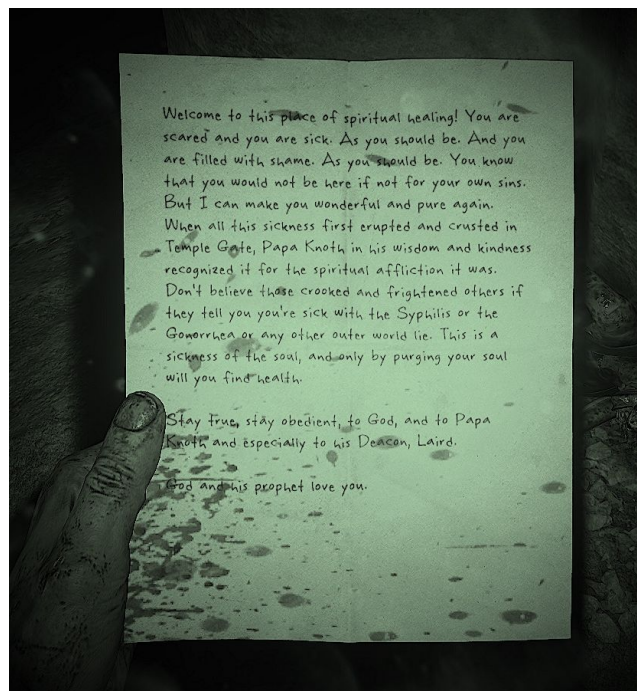 Welcome to this place of spiritual healing! You are
scared and you are sick. As you should be. And you
are filled with shame. As you should be. You know
that you would not be here if not for your own sins.
But I can make you wonderful and pure again.
When all this sickness first erupted and crusted in
Temple Gate, Papa Knoth in his wisdom and kindness
recognized it for the spiritual affliction it was.
Don't believe those crooked and frightened others if
they tell you you're sick with the Syphilis or the
Gonorrhea or any other outer world lie. This is a
sickness of the soul, and only by purging your soul
will you find health.
Stay true, stay obedient, to God, and to Papa
Knoth and especially to his Deacon, Laird.
God and his prophet love you.